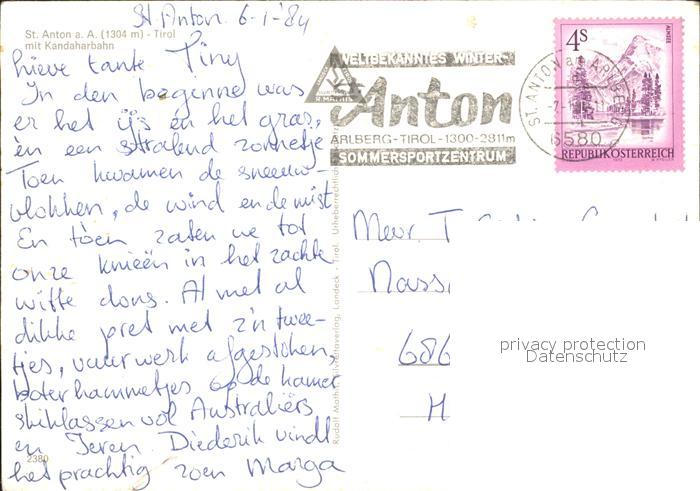 St. Anton. 6-1-'84
St. Anton a. A. (1304 m) - Tirol
mit Kandaharbahn
lieve tante Tiny
In den beginne was
er het ijs en het gras,
en een stralend zonnetje
Toen kwamen de sneeuw-
vlokken, de wind en de mist
En toen zaten we tot
onze knieën in het zachte
witte dons. Al met al
dikke pret met z'n twee-
tjes, vuurwerk afgestoken,
boterhammetjes op de kamer
skiklassen vol Australiërs
en Ieren. Diederik vindt
het prachtig zoen Marga
2380
WELTBEKANNTES WINTER-
St. Anton
ARLBERG-TIROL-1300-2811m
SOMMERSPORTZENTRUM
ST. ANTON am ARLBERG
6580
4 S
REPUBLIK ÖSTERREICH
Rudolf Mathis, Landeck - Tirol.
Mevr. T
Nass
686
H
privacy protection
Datenschutz